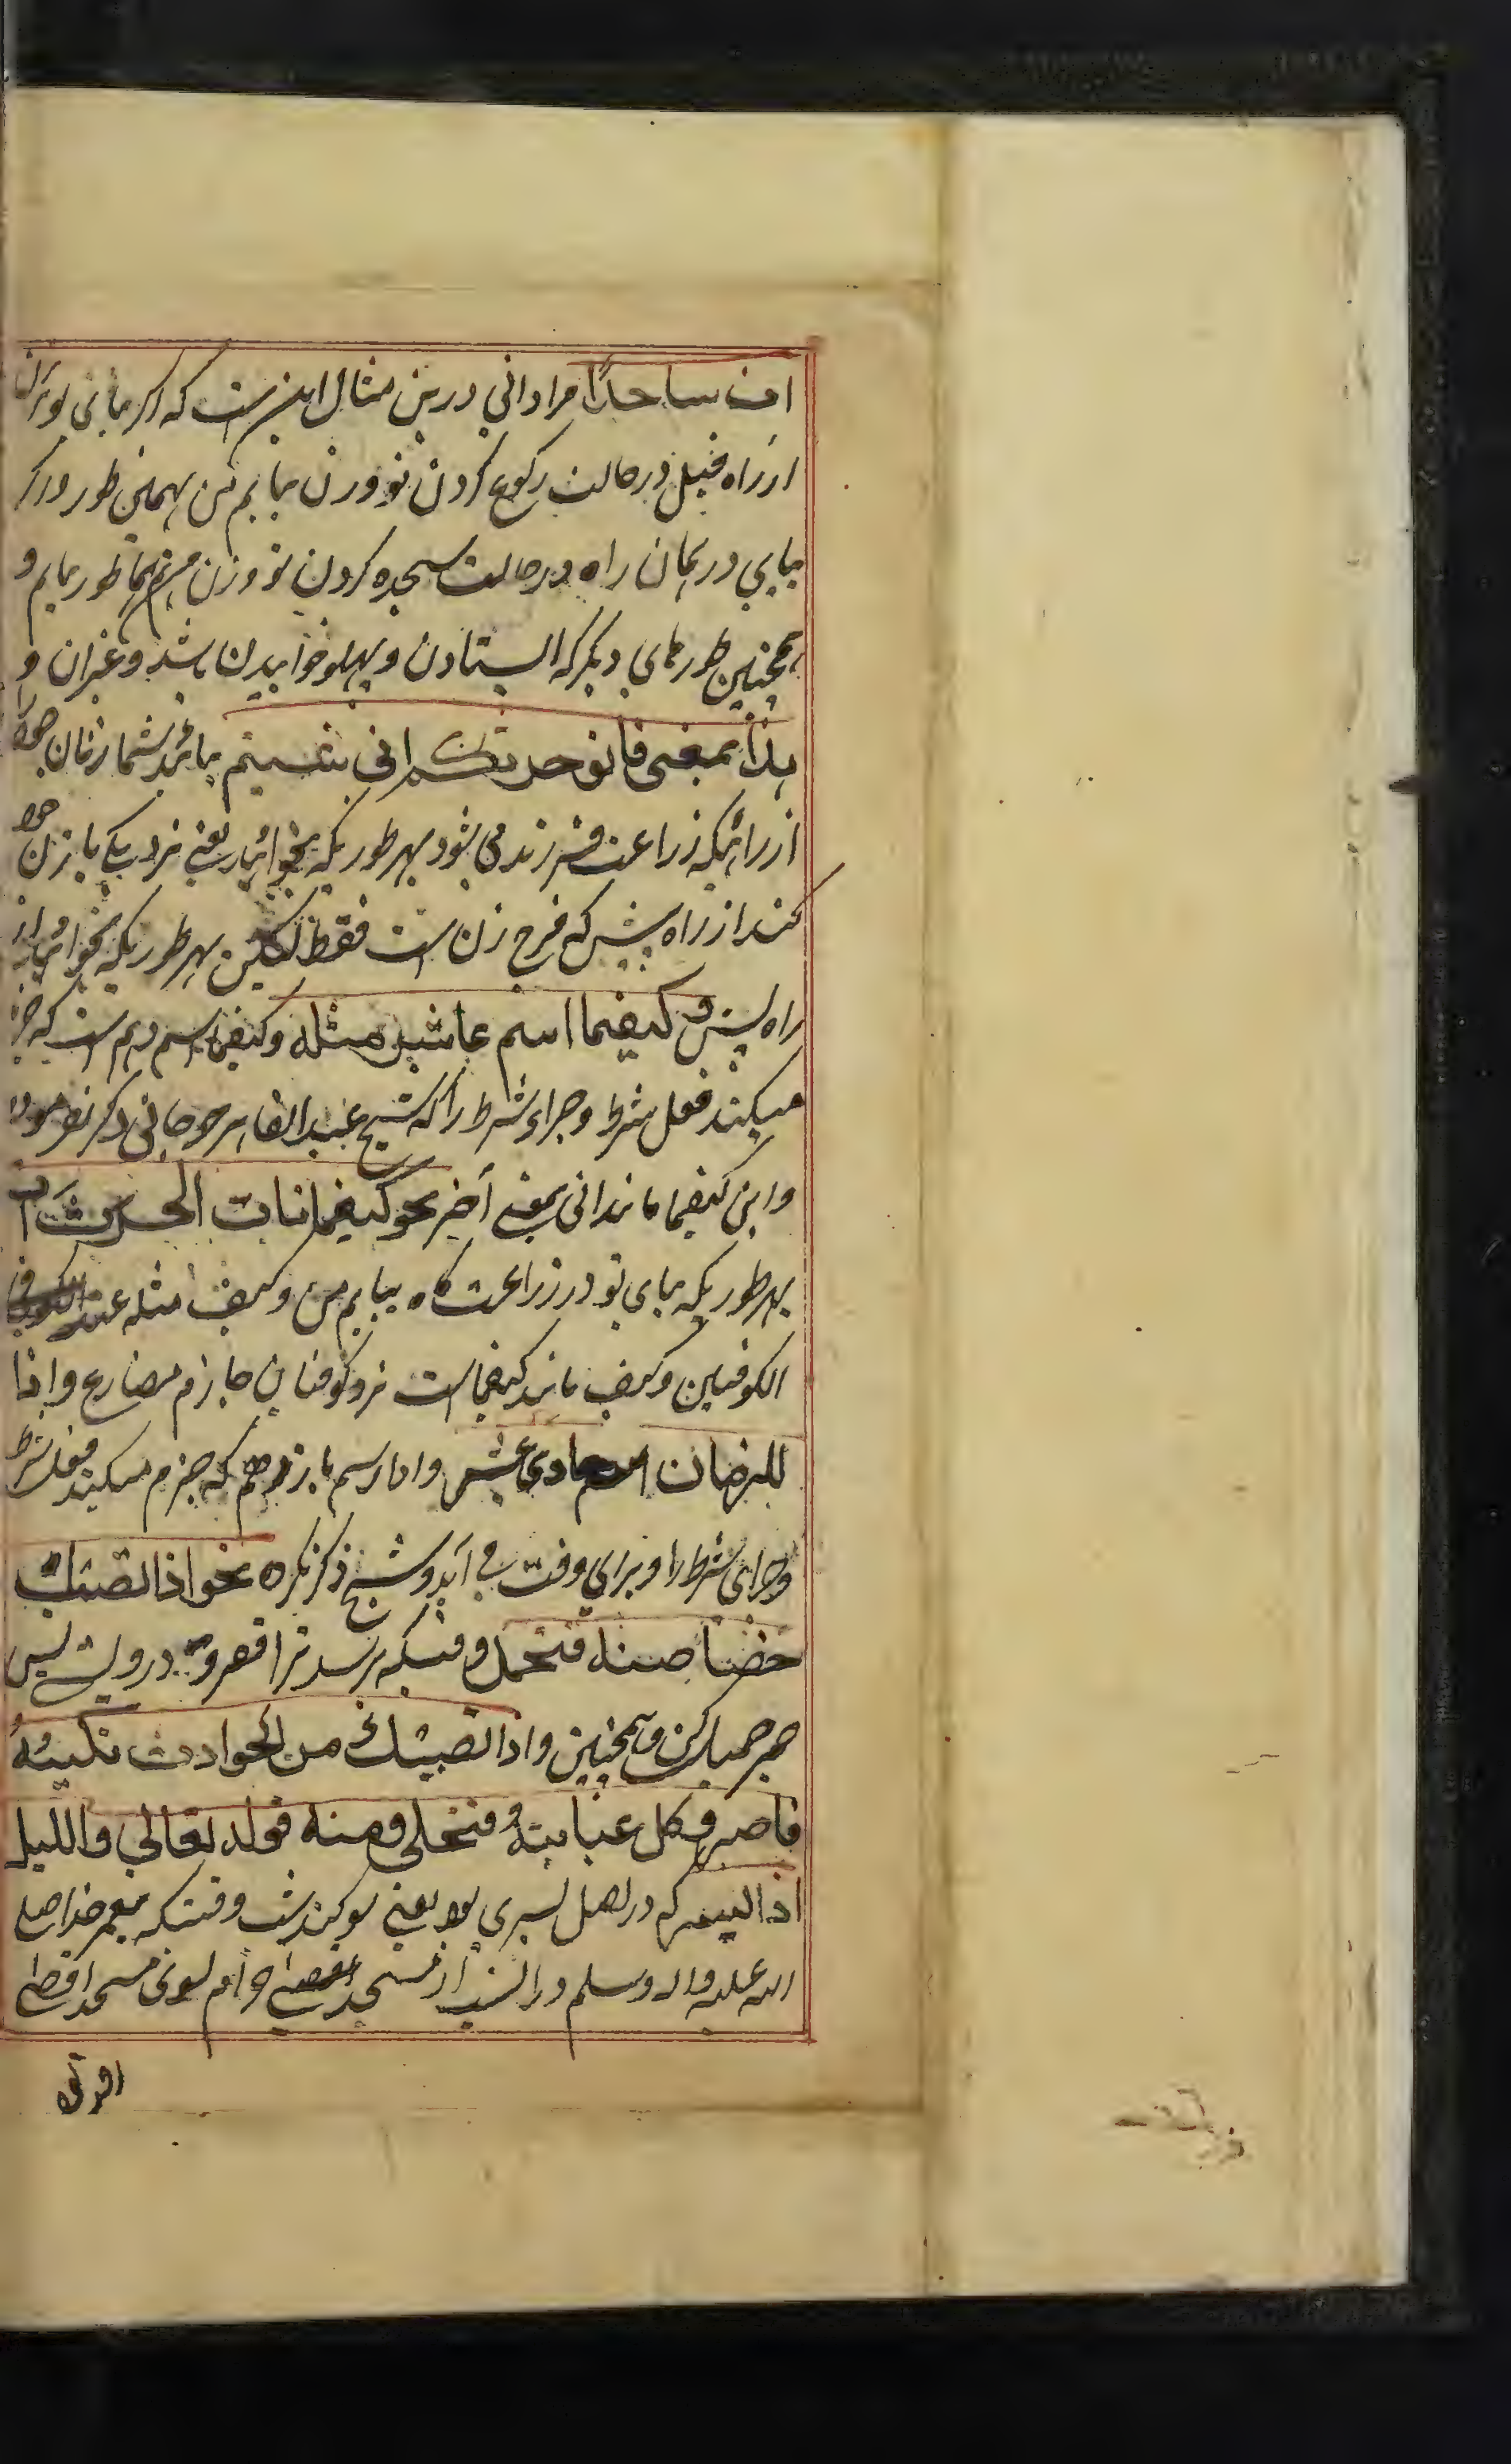 ات ساجدًا مراد انی درین مثال این ست که اگر بیایی تو بزن
از راه قبل در حالت رکوع کردن تو و زن بیایم من بهمین طور و اگر
بیایی در همان راه در حالت سجده کردن تو و زن من هم بهمان طور بیایم و
همچنین طورهای دیگر که ایستادن و پهلو خوابیدن باشد و غیران و
بهذا بمعنی فاتوا حرثکم انی شئتم بیائید شما زنان خود را
از رائیکه زراعت فرزند می شود بهر طوریکه بخواهید یعنی نزدیکی با زن خود
کنند از راه پیش که فرج زن است فقط لیکن بهر طوریکه بخواهید از
راه پیش و کیفما اسم عاشر مثله و کیفما اسم دهم است که جزم
میکند فعل شرط و جزاء شرط را که شیخ عبد القاهر جرجانی ذکر نفرموده
و این کیفما مانند انی بمعنی آخر نحو کیفما تات الحرث آت
بهر طوریکه بیای تو در زراعت گاه بیایم من و کیف مثله عند
الکوفیین و کیف مانند کیفماست نزد کوفیان جازم مضارع و اذا
للزمان حادی عشر و اذا اسم یازدهم که جزم میکند فعل شرط
و جزای شرط را و برای وقت می آید و شیخ ذکر نکرده نحو اذا تصبک
خصاصة فتحمل وقتیکه برسد ترا فقر و درویشی پس
صبر جمیل کن و همچنین و اذا تصبک من الحوادث نکبة
فاصبر فکل غیابة فتنجلی و منه قوله تعالی واللیل
اذا یسر که در اصل یسری بود یعنی سوگند بشب وقتیکه پیغمبر خدا صلی
الله علیه و اله و سلم در آن شب از مسجد حرام بسوی مسجد اقصی